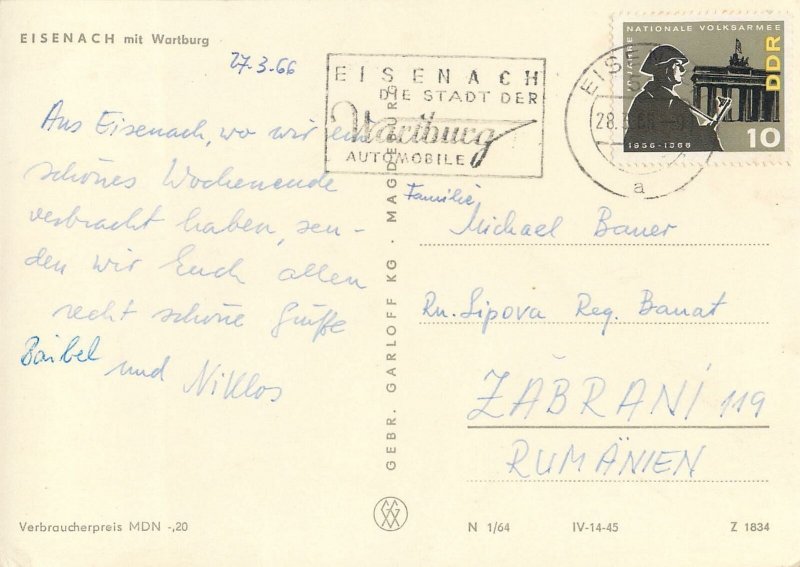 EISENACH mit Wartburg
27-3-66
Aus Eisenach, wo wir ein
schönes Wochenende
verbracht haben, sen-
den wir Euch allen
recht schöne Grüße
Bärbel und Niklos
Verbraucherpreis MDN -,20
GEBR. GARLOFF KG · MAGDEBURG
EISENACH
DIE STADT DER
Wartburg
AUTOMOBILE
EISE
28.3.66-9
a
10 JAHRE NATIONALE VOLKSARMEE
DDR
1956-1966
10
Familie
Michael Bauer
Rn. Lipova Reg. Banat
ZĂBRANI 119
RUMÄNIEN
N 1/64 IV-14-45 Z 1834